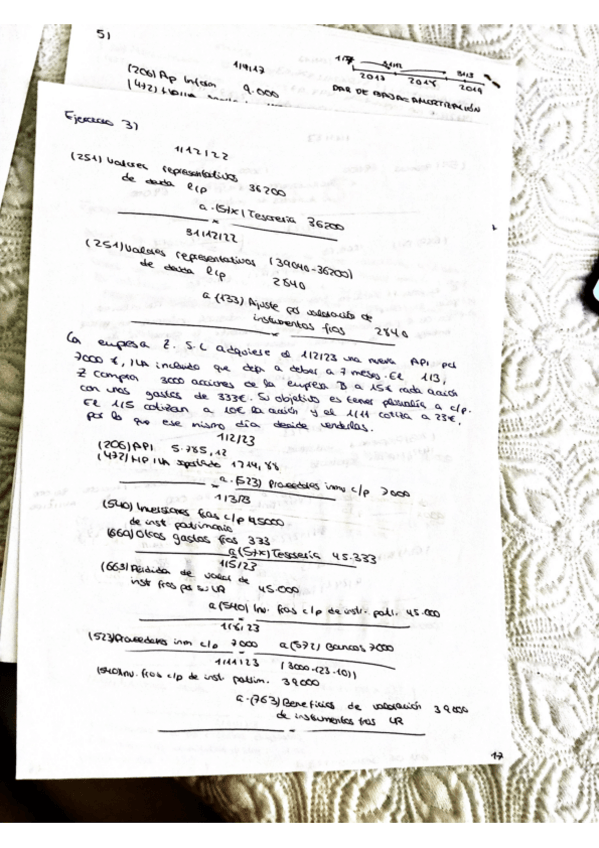 5)
1/9/17
(206) Ap Inform 9.000
(472) H.P. IVA
1/7
2017 2018 2019
31/3
DAR DE BAJA = AMORTIZACIÓN
Ejercicio 3)
1/12/22
(251) Valores representativos
de deuda l/p 36200
a (57x) Tesorería 36200
31/12/22
(251) Valores representativos (39040-36200)
de deuda l/p 2840
a (133) Ajuste por valoración de
instrumentos fros 2840
La empresa Z. S.L adquiere el 1/2/23 una nueva API por
7000 €, IVA incluido que deja a deber a 7 meses. El 1/3,
Z compra 3000 acciones de la empresa B a 15€ cada acción
con unos gastos de 333€. Su objetivo es tener plusvalía a c/p.
El 1/5 cotizan a 10€ la acción y el 1/11 cotiza a 23€,
por lo que ese mismo día decide venderlas.
1/2/23
(206) API 5.785,12
(472) HP IVA soportado 1214,88
a (523) Proveedores inm c/p 7000
1/3/23
(540) Inversiones fras c/p 45000
de inst patrimonio
(669) Otros gastos fros 333
a (57x) Tesorería 45.333
1/5/23
(663) Pérdidas de valor de
inst fros por su VR 45.000
a (540) Inv. fras c/p de instr. patri. 45.000
(523) Proveedores inm c/p 7000 a (572) Bancos 7000
1/11/23 (3000·(23-10))
(540) Inv. fras c/p de inst patrim. 39000
a (763) Beneficios de valoración 39000
de instrumentos fros VR
17